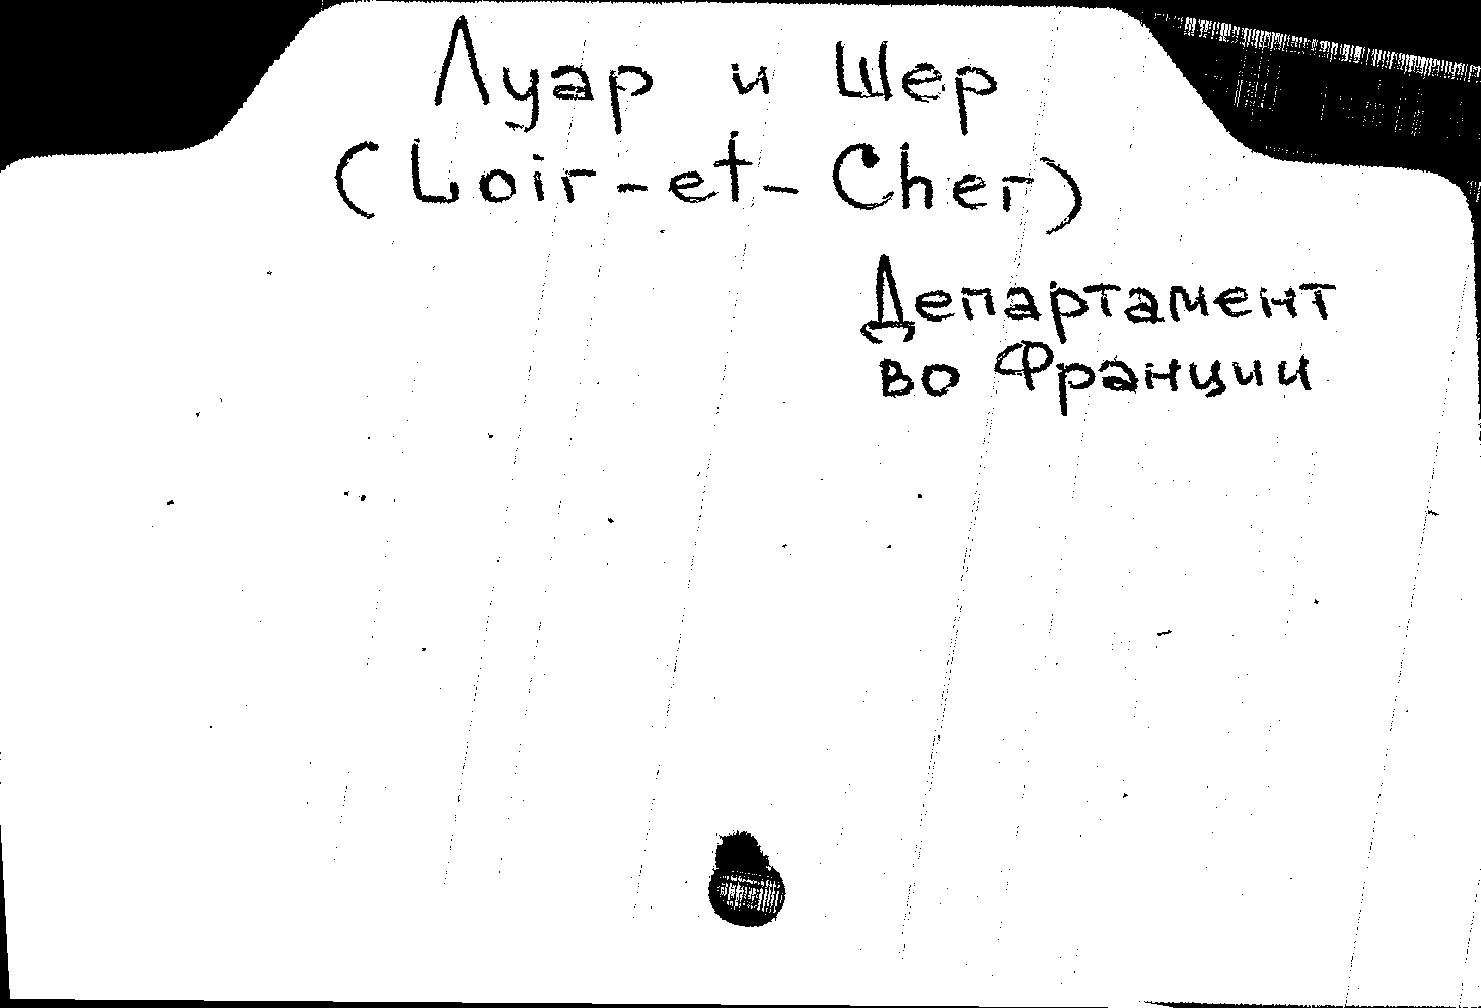 Луар и Шер
(Loir-et-Cher)
Департамент
во Франции